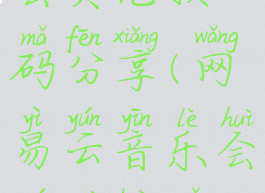 mǎ fēn xiǎng wǎng
码分享(网
yì yún yīn lè huì
易云音乐会